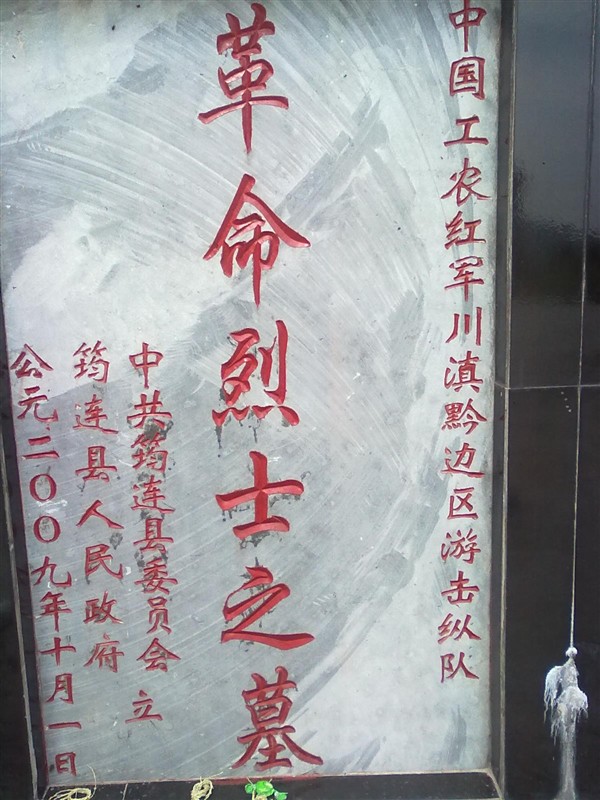 中国工农红军川滇黔边区游击纵队
革命烈士之墓
中共筠连县委员会 立
筠连县人民政府
公元二00九年十月一日